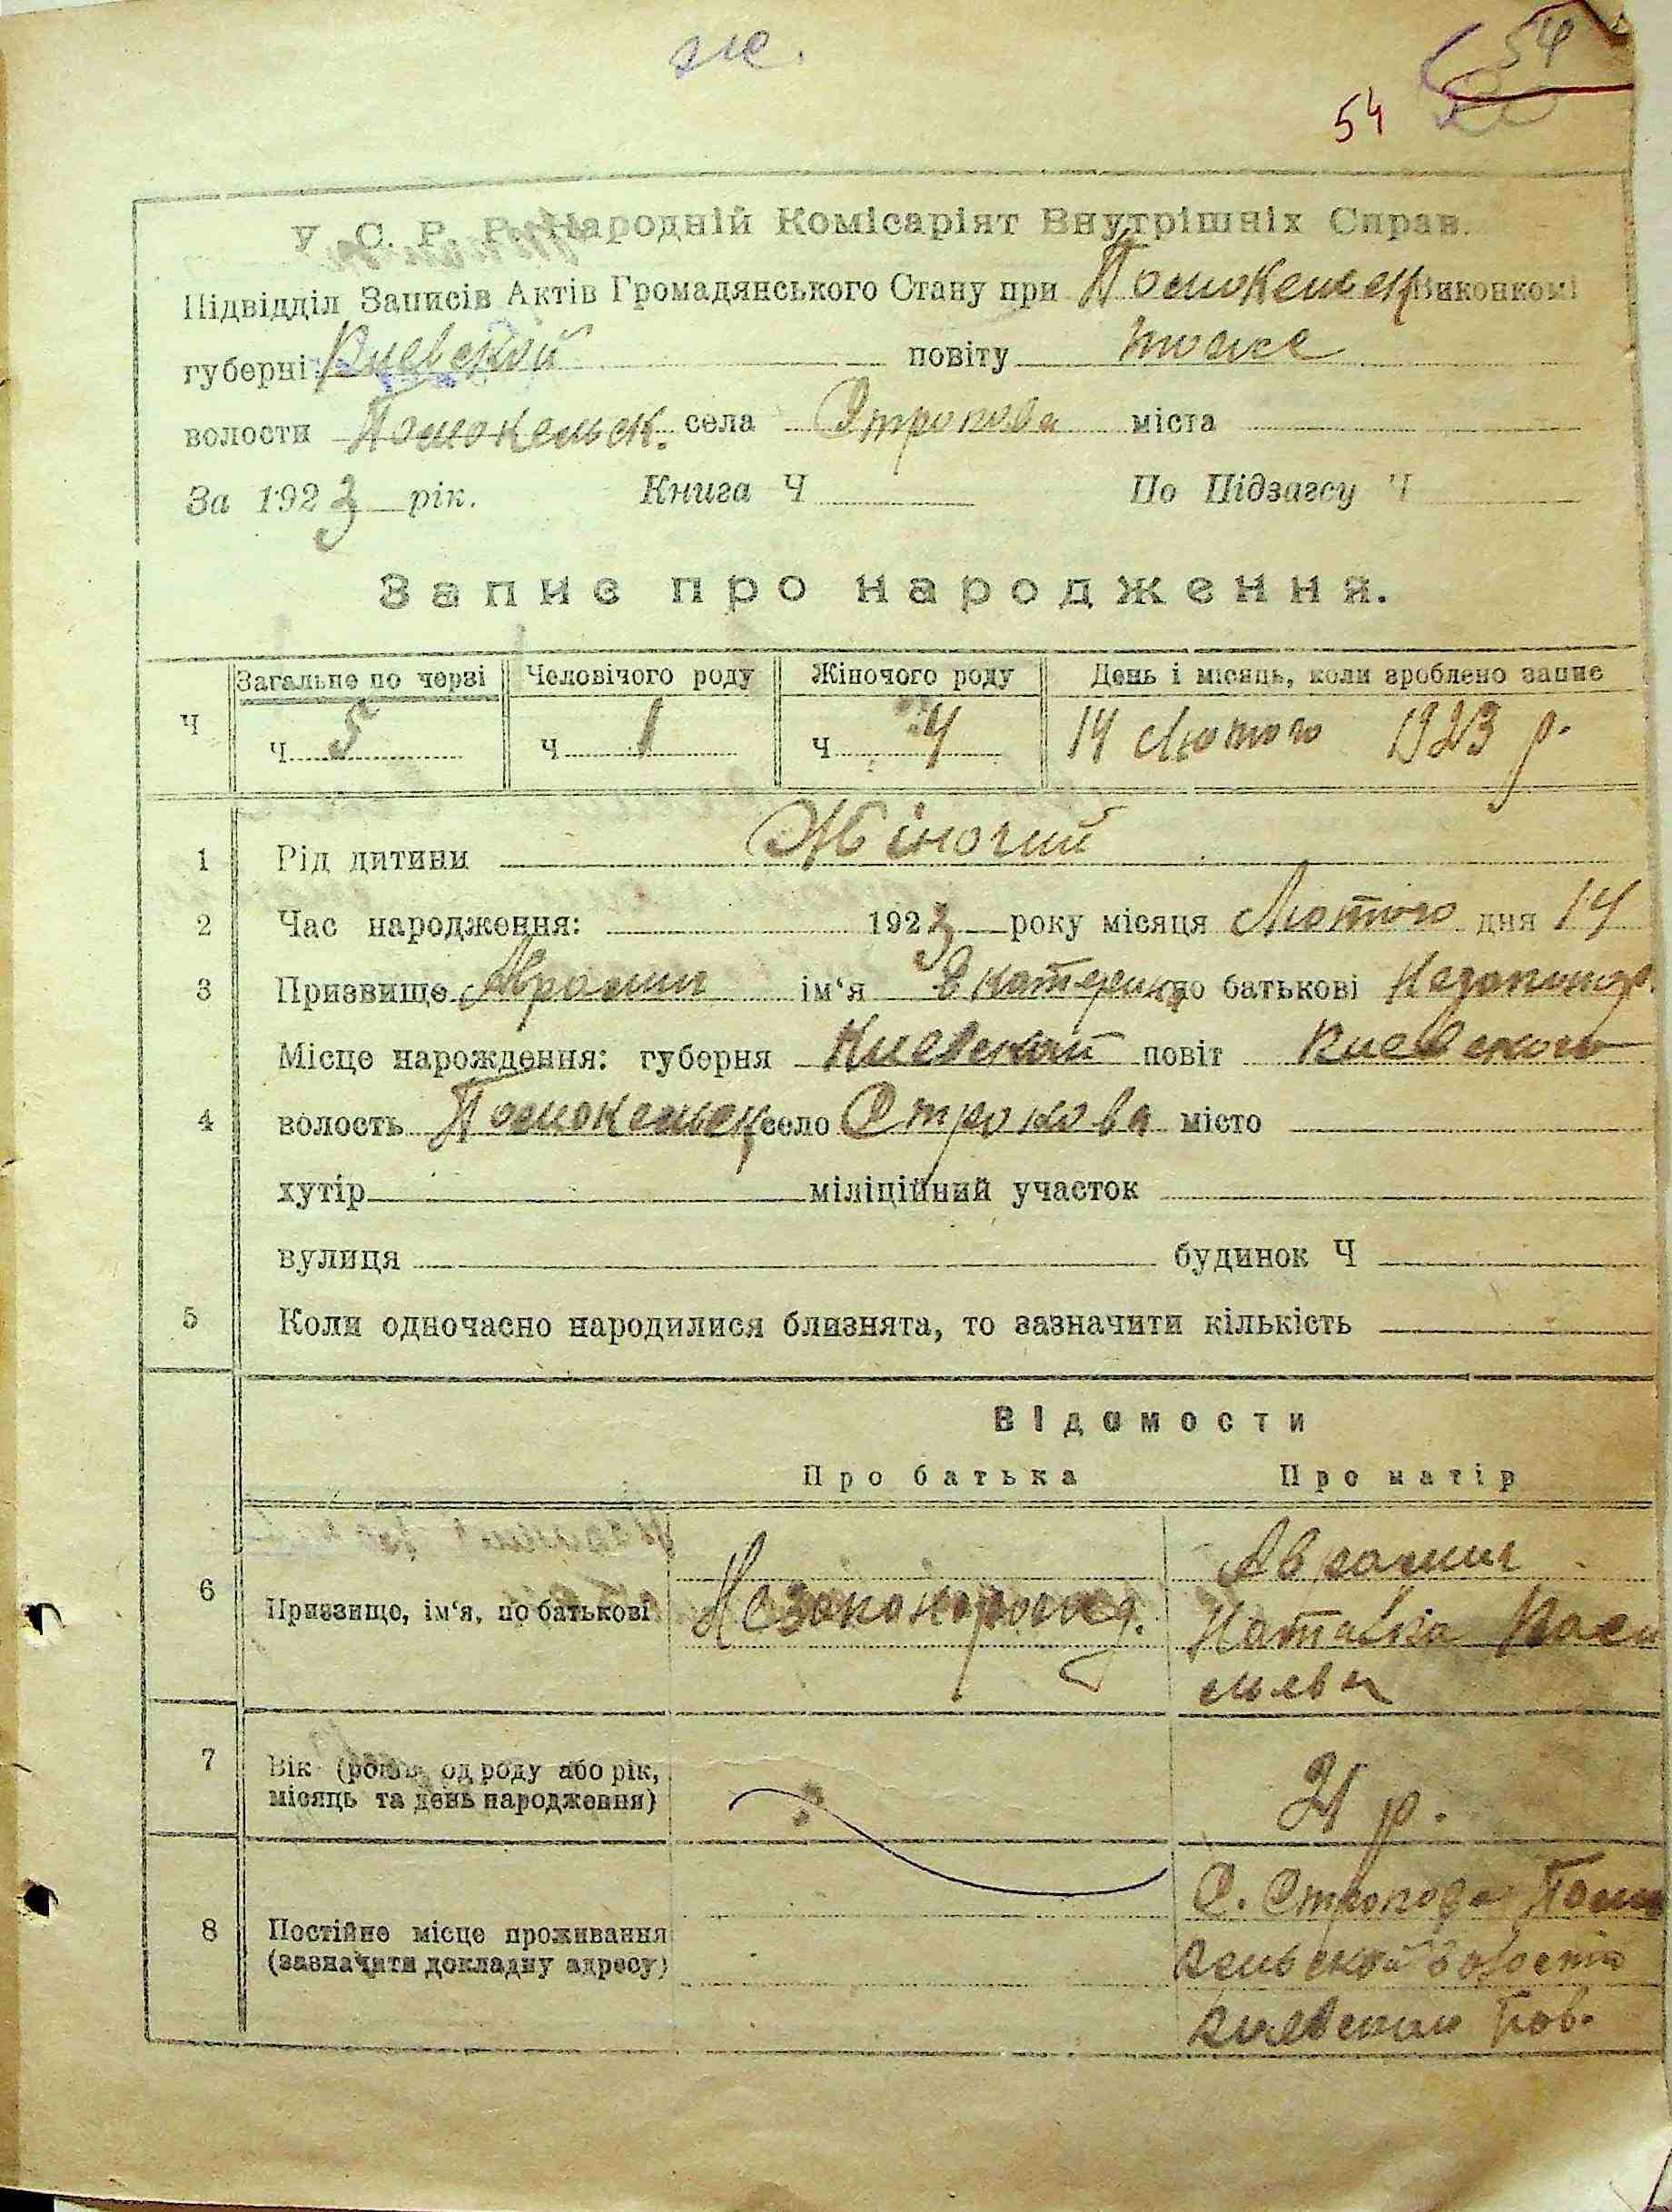 ж.
54
54
У. С. Р. Р. Народній Комісаріят Внутрішніх Справ.
Підвідділ Записів Актів Громадянського Стану при Виконкомі
губерні Киевской повіту тоже
волости села Строкова міста
За 1923 рік. Книга Ч По Підзагсу Ч
Запис про народження.
Загальне по черзі Человічого роду Жіночого роду День і місяць, коли зроблено запис
Ч Ч 5 Ч 1 Ч 4 14 Лютого 1923 р.
1 Рід дитини Жіночий
2 Час народження: 1923 року місяця Лютого дня 14
3 Призвище Аврамич ім‘я Екатерина по батькові
Місце нарождення: губерня Киевской повіт Киевского
4 волость село Строкова місто
хутір міліційний участок
вулиця будинок Ч
5 Коли одночасно народилися близнята, то зазначити кількість
Відомости
Про батька Про матір
6 Призвище, ім‘я, по батькові Незаконорожд. Аврамич
Наталія Васи
льева
7 Вік (років од роду або рік,
місяць та день народження) 21 р.
8 Постійне місце проживання
(зазначити докладну адресу)
С. Строкова
волости
Киевским Пов.